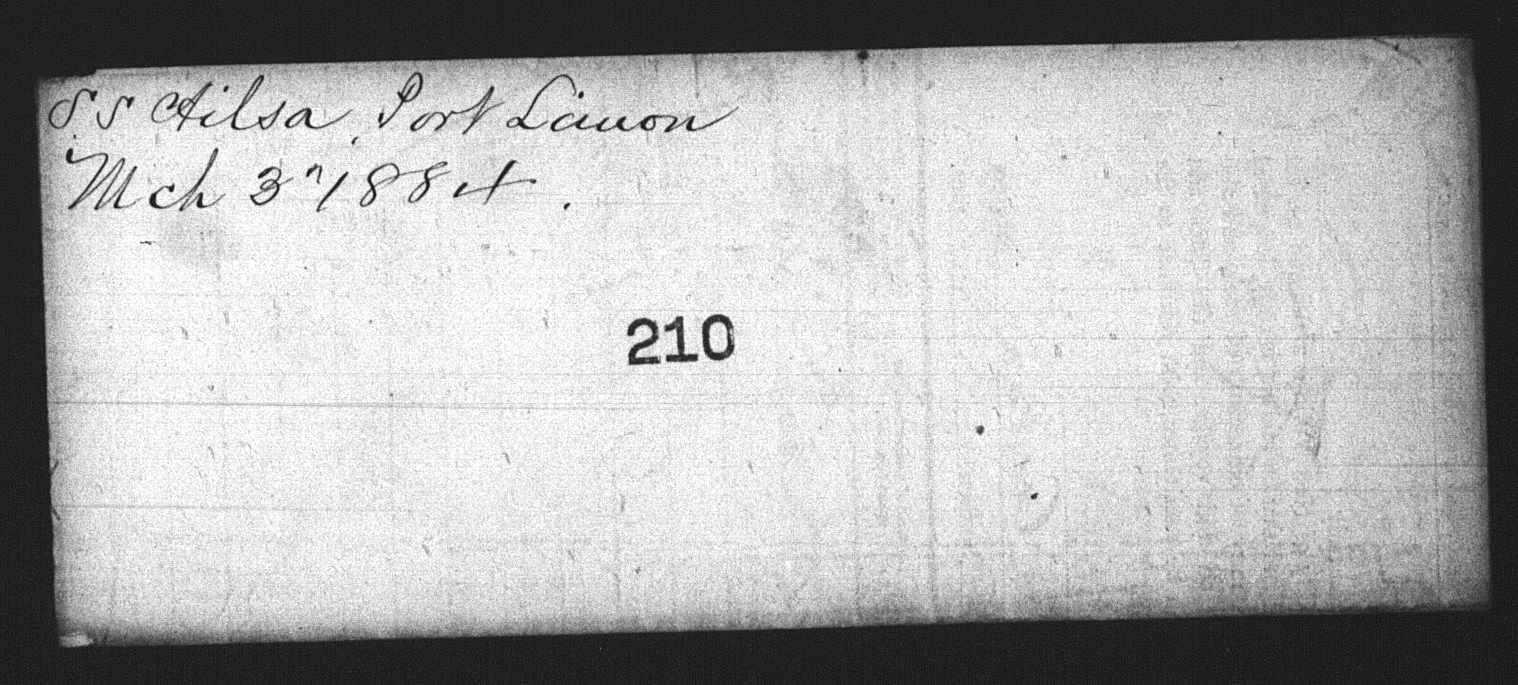 SS Ailsa Port Limon
Mch 3" 1884.
210